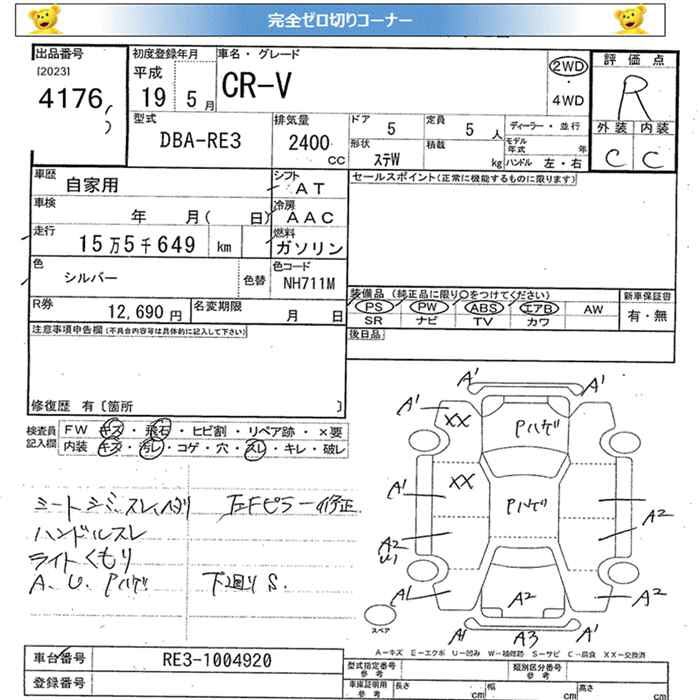 完全ゼロ切りコーナー
出品番号 初度登録年月 車名・グレード 2WD 評価点
[2023] 平成 CR-V ・ R
4176 19 5月 4WD
型式 排気量 ドア 5 定員 5人 ディーラー・並行 外装 内装
DBA-RE3 2400CC 形状 ステW 積載 kg モデル年式 年 C C
ハンドル 左・右
車歴 自家用 シフト AT セールスポイント(正常に機能するものに限ります)
車検 年 月( 日) 冷房 AAC
走行 15万5千649 km 燃料 ガソリン
色 シルバー 色替 色コード NH711M
装備品 (純正品に限り○をつけてください) 新車保証書
R券 12,690円 名変期限 月 日 PS PW ABS エアB AW 有・無
SR ナビ TV カワ
注意事項申告欄(不具合内容等は具体的に記入して下さい) 後日品
修復歴 有〔箇所 〕
検査員記入欄 FW キズ・飛石・ヒビ割・リペア跡・×要
内装 キズ・汚レ・コゲ・穴・スレ・キレ・破レ
シートシミ、スレ、ヘタリ 左Fピラー修正
ハンドルスレ
ライトくもり
A.U.Pハゲ 下廻りS.
A1 A1
A1 XX Pハゲ
XX
A1 Pハゲ A2
A2
U1
A1 A2 A2
スペア A1 A3 A1
A-キズ E-エクボ U-凹み W-補修跡 S-サビ C-腐食 XX-交換済
車台番号 RE3-1004920 型式指定番号 参考 類別区分番号 参考
登録番号 車庫証明用 参考 長さ cm 幅 cm 高さ cm